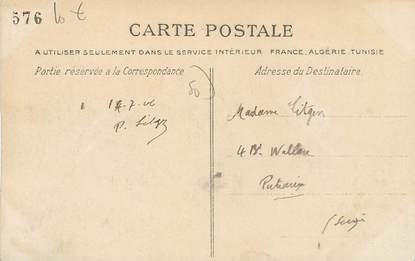 576 10 €
CARTE POSTALE
A UTILISER SEULEMENT DANS LE SERVICE INTÉRIEUR FRANCE, ALGÉRIE TUNISIE
Partie réservée a la Correspondance
Adresse du Destinataire.
50
7.06
P.
Madame Litgen
4 Bd. Wallace
Puteaux
(Seine